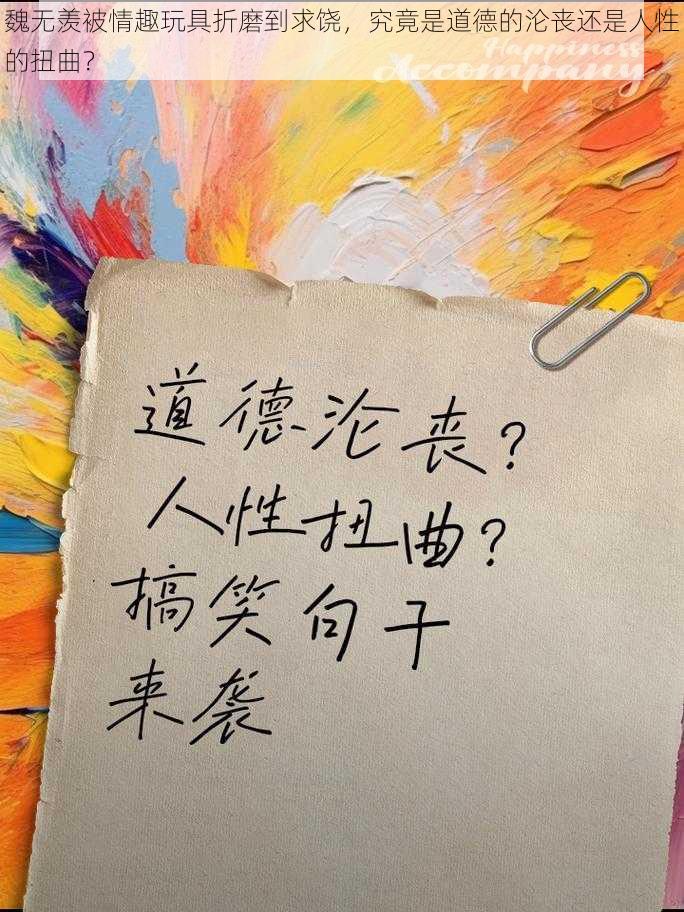 魏无羡被情趣玩具折磨到求饶，究竟是道德的沦丧还是人性
的扭曲？
Happiness
Accompany
道德沦丧?
人性扭曲?
搞笑句子
来袭